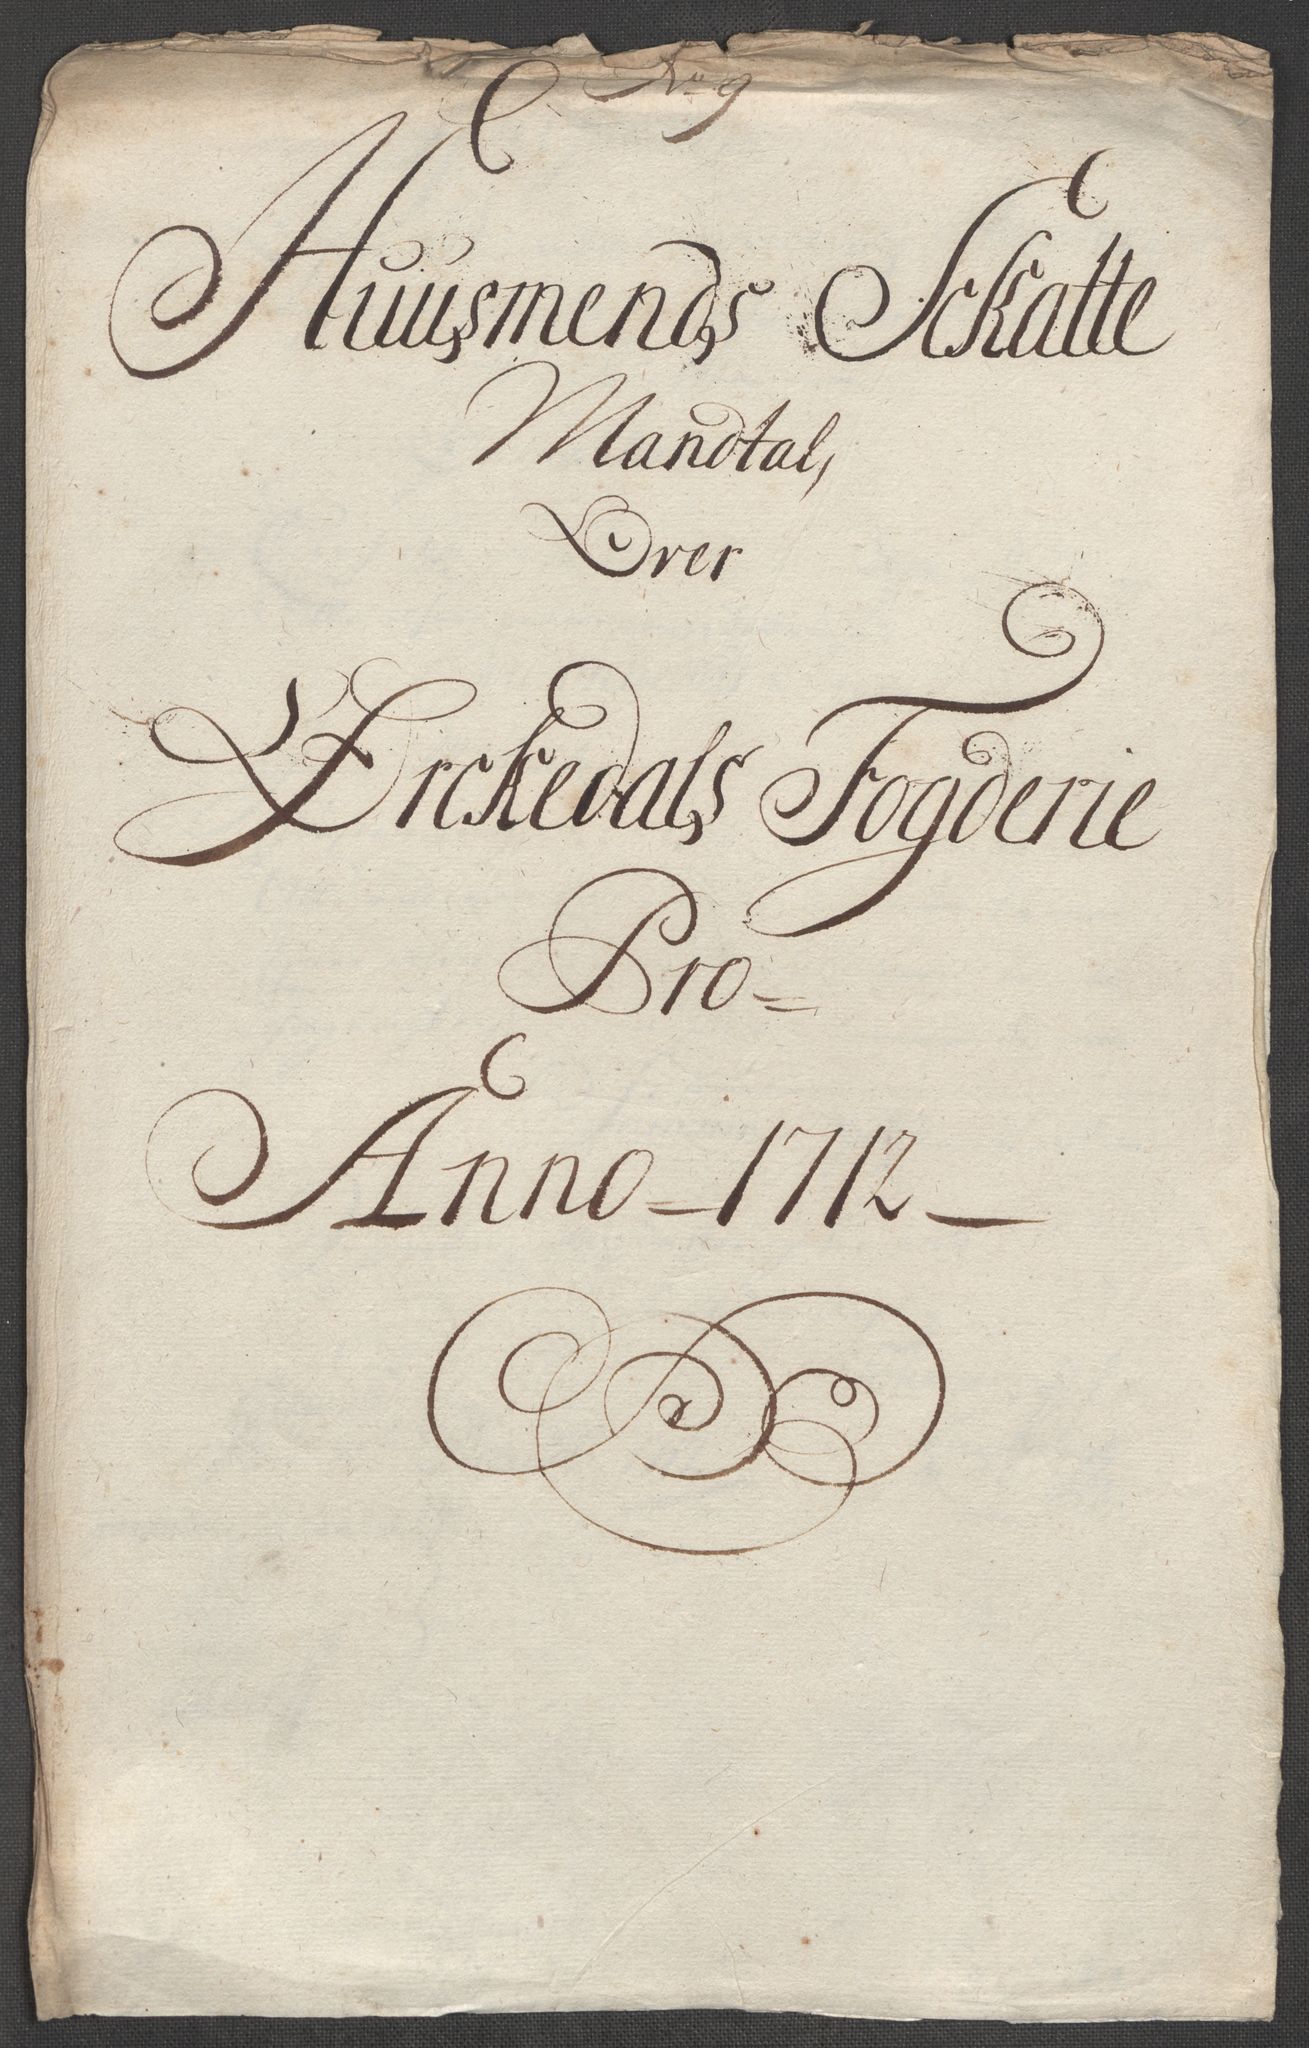 No 9
Huusmends Sckatte
Mandtal,
Over
Orckedals Fogderie
Pro=
Anno = 1712 _